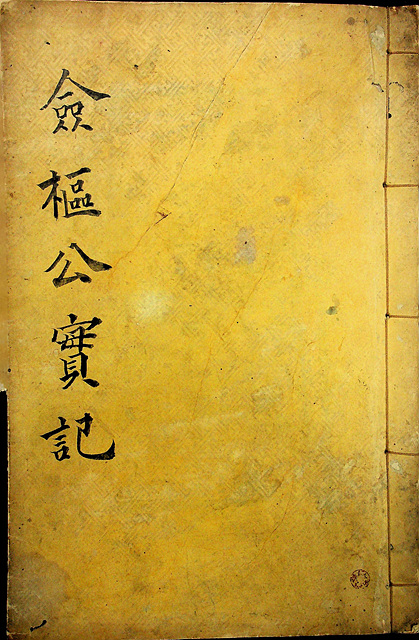 僉樞公實記